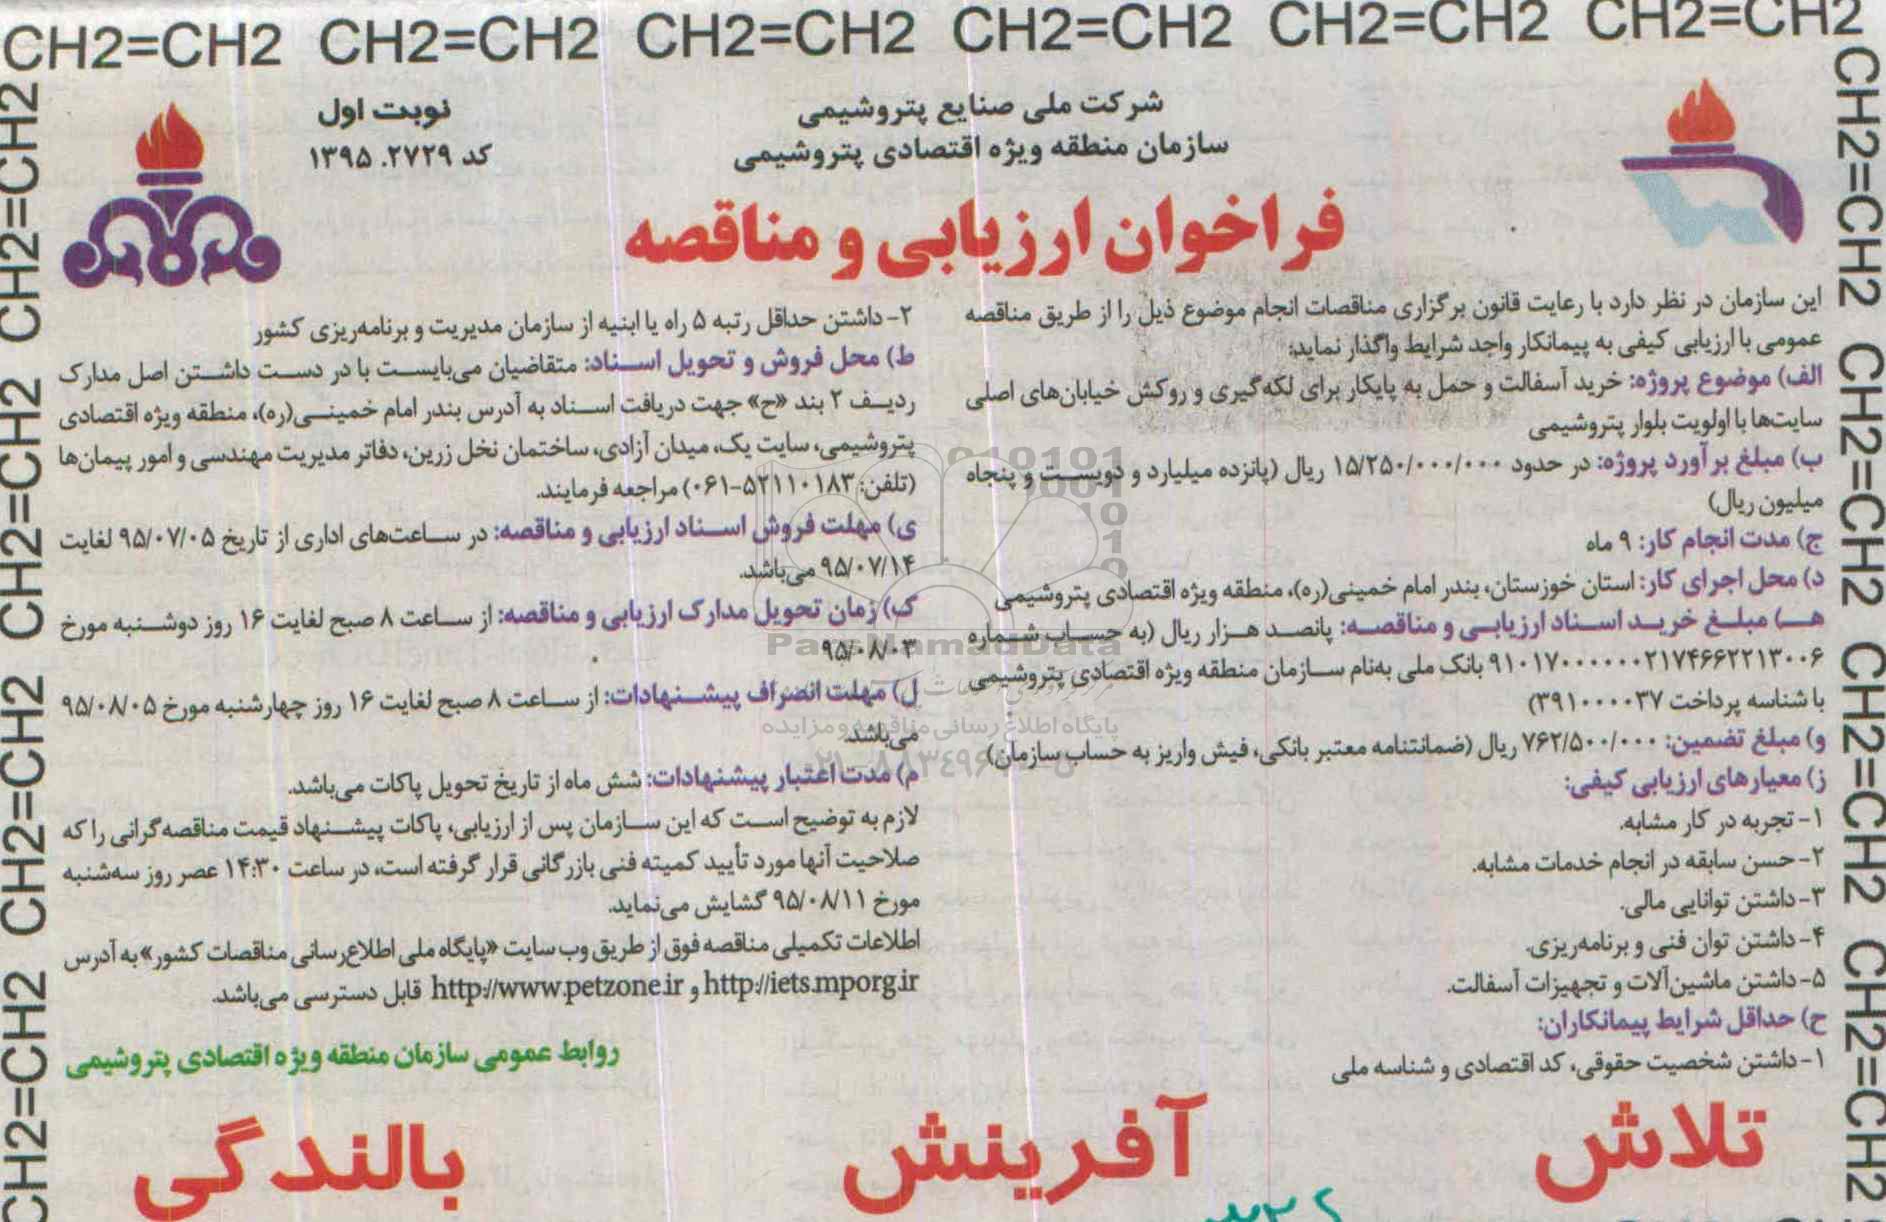 CH2=CH2 CH2=CH2 CH2=CH2 CH2=CH2 CH2=CH2 CH2=CH2
شرکت ملی صنایع پتروشیمی
سازمان منطقه ویژه اقتصادی پتروشیمی
نوبت اول
کد ۲۷۲۹. ۱۳۹۵
فراخوان ارزیابی و مناقصه
این سازمان در نظر دارد با رعایت قانون برگزاری مناقصات انجام موضوع ذیل را از طریق مناقصه
عمومی با ارزیابی کیفی به پیمانکار واجد شرایط واگذار نماید:
الف) موضوع پروژه: خرید آسفالت و حمل به پایکار برای لکه‌گیری و روکش خیابان‌های اصلی
سایت‌ها با اولویت بلوار پتروشیمی
ب) مبلغ برآورد پروژه: در حدود ۱۵/۲۵۰/۰۰۰/۰۰۰ ریال (پانزده میلیارد و دویست و پنجاه
میلیون ریال)
ج) مدت انجام کار: ۹ ماه
د) محل اجرای کار: استان خوزستان، بندر امام خمینی(ره)، منطقه ویژه اقتصادی پتروشیمی
هـ) مبلغ خرید اسناد ارزیابی و مناقصه: پانصد هزار ریال (به حساب شماره
۹۱۰۱۷۰۰۰۰۰۰۲۱۷۴۶۶۲۲۱۳۰۰۶ بانک ملی به‌نام سازمان منطقه ویژه اقتصادی پتروشیمی
با شناسه پرداخت ۳۹۱۰۰۰۰۳۷)
و) مبلغ تضمین: ۷۶۲/۵۰۰/۰۰۰ ریال (ضمانتنامه معتبر بانکی، فیش واریز به حساب سازمان)
ز) معیارهای ارزیابی کیفی:
۱- تجربه در کار مشابه.
۲- حسن سابقه در انجام خدمات مشابه.
۳- داشتن توانایی مالی.
۴- داشتن توان فنی و برنامه‌ریزی.
۵- داشتن ماشین‌آلات و تجهیزات آسفالت.
ح) حداقل شرایط پیمانکاران:
۱- داشتن شخصیت حقوقی، کد اقتصادی و شناسه ملی
۲- داشتن حداقل رتبه ۵ راه یا ابنیه از سازمان مدیریت و برنامه‌ریزی کشور
ط) محل فروش و تحویل اسناد: متقاضیان می‌بایست با در دست داشتن اصل مدارک
ردیف ۲ بند «ح» جهت دریافت اسناد به آدرس بندر امام خمینی(ره)، منطقه ویژه اقتصادی
پتروشیمی، سایت یک، میدان آزادی، ساختمان نخل زرین، دفاتر مدیریت مهندسی و امور پیمان‌ها
(تلفن: ۵۲۱۱۰۱۸۳-۰۶۱) مراجعه فرمایند.
ی) مهلت فروش اسناد ارزیابی و مناقصه: در ساعت‌های اداری از تاریخ ۹۵/۰۷/۰۵ لغایت
۹۵/۰۷/۱۴ می‌باشد.
ک) زمان تحویل مدارک ارزیابی و مناقصه: از ساعت ۸ صبح لغایت ۱۶ روز دوشنبه مورخ
۹۵/۰۸/۰۳
ل) مهلت انصراف پیشنهادات: از ساعت ۸ صبح لغایت ۱۶ روز چهارشنبه مورخ ۹۵/۰۸/۰۵
می‌باشد.
م) مدت اعتبار پیشنهادات: شش ماه از تاریخ تحویل پاکات می‌باشد.
لازم به توضیح است که این سازمان پس از ارزیابی، پاکات پیشنهاد قیمت مناقصه‌گرانی را که
صلاحیت آنها مورد تأیید کمیته فنی بازرگانی قرار گرفته است، در ساعت ۱۴:۳۰ عصر روز سه‌شنبه
مورخ ۹۵/۰۸/۱۱ گشایش می‌نماید.
اطلاعات تکمیلی مناقصه فوق از طریق وب سایت «پایگاه ملی اطلاع‌رسانی مناقصات کشور» به آدرس
http://iets.mporg.ir و http://www.petzone.ir قابل دسترسی می‌باشد.
روابط عمومی سازمان منطقه ویژه اقتصادی پتروشیمی
تلاش آفرینش بالندگی
ParsNamadData
پایگاه اطلاع رسانی مناقصه و مزایده
CH2=CH2 CH2=CH2 CH2=CH2 CH2=CH2
CH2=CH2 CH2=CH2 CH2=CH2 CH2=CH2